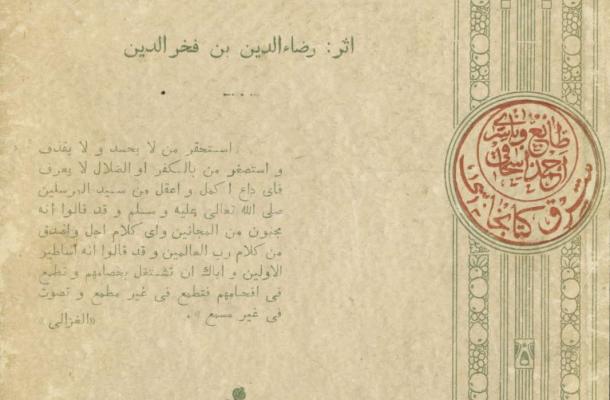 اثر: رضاءالدين بن فخرالدين
استحقر من لا يحسد و لا يقذف
و استصغر من بالكفر او الضلال لا يعرف
فاى داع اكمل و اعقل من سيد المرسلين
صلى الله تعالى عليه و سلم و قد قالوا انه
مجنون من المجانين واى كلام اجل واصدق
من كلام رب العالمين و قد قالوا انه اساطير
الاولين و اياك ان تشتغل بخصامهم و تطمع
فى افحامهم فتطمع فى غير مطمع و تصوت
فى غير مسمع ».
«الغزالى»
طابع و ناشرى
احمد اسحاقى
شرق كتابخانه سى